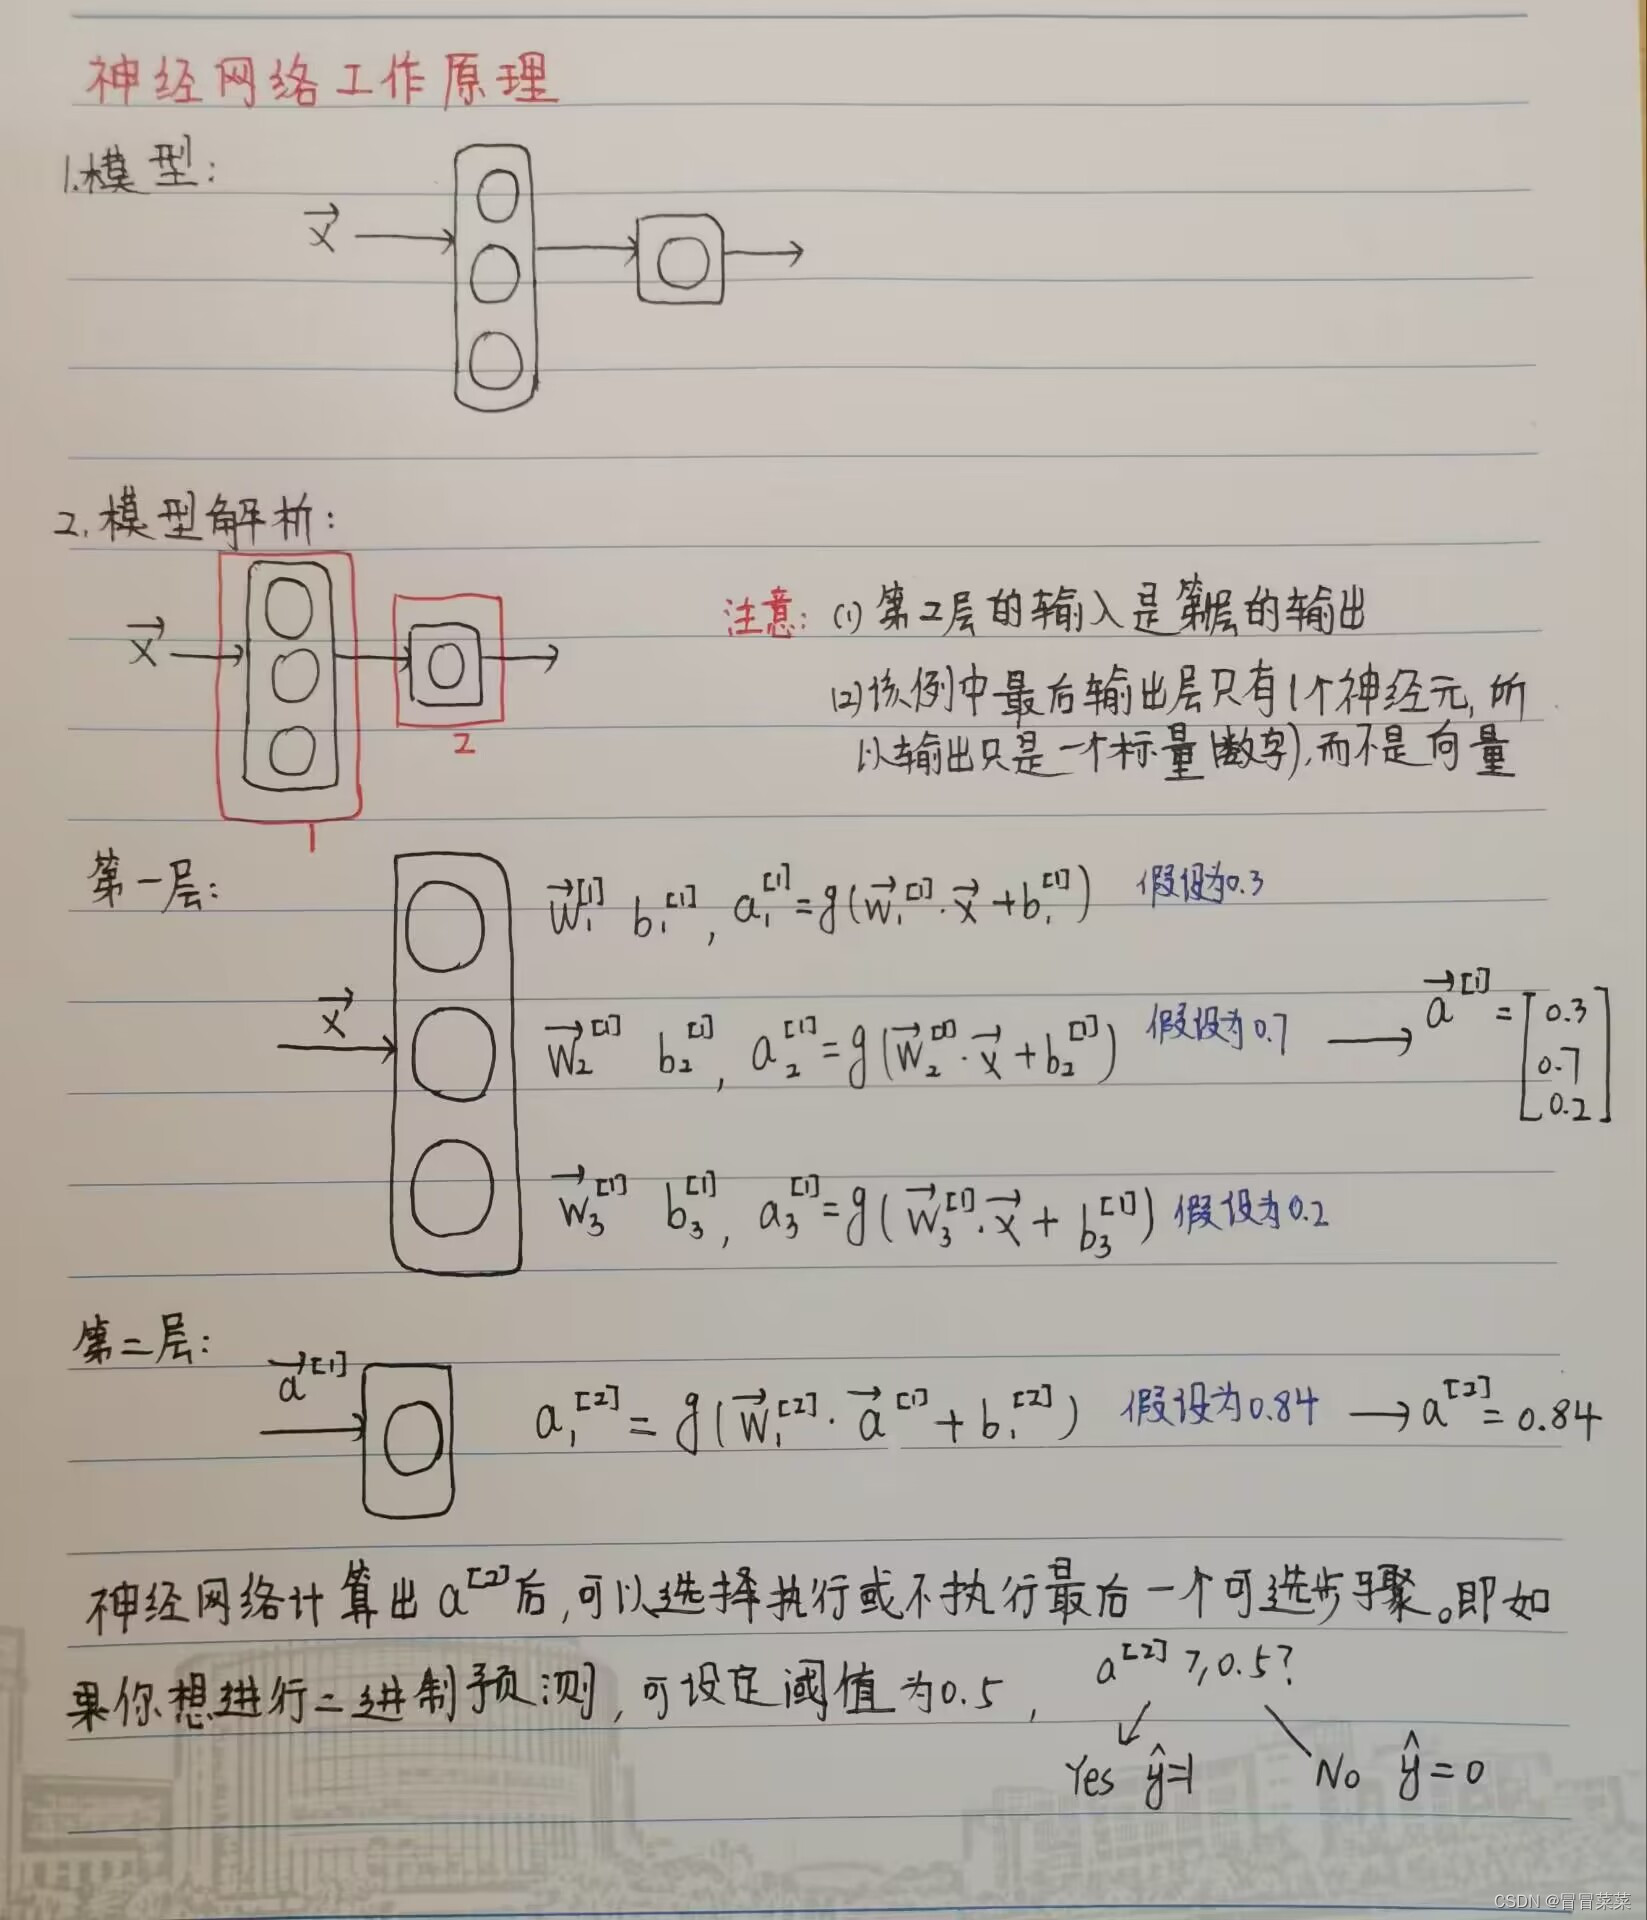 神经网络工作原理
1.模型:
x⃗
2.模型解析:
x⃗
1
2
注意: (1) 第2层的输入是第1层的输出
(2)该例中最后输出层只有1个神经元,所
以输出只是一个标量(数字),而不是向量
第一层:
w⃗₁^[1] b₁^[1], a₁^[1]=g(w⃗₁^[1]·x⃗+b₁^[1]) 假设为0.3
x⃗
w⃗₂^[1] b₂^[1], a₂^[1]=g(w⃗₂^[1]·x⃗+b₂^[1]) 假设为0.7 → a⃗^[1] = [0.3
0.7
0.2]
w⃗₃^[1] b₃^[1], a₃^[1]=g(w⃗₃^[1]·x⃗+b₃^[1]) 假设为0.2
第二层:
a⃗^[1]
a₁^[2] = g(w⃗₁^[2]·a⃗^[1]+b₁^[2]) 假设为0.84 → a^[2] = 0.84
神经网络计算出a^[2]后,可以选择执行或不执行最后一个可选步骤。即如
果你想进行二进制预测,可设定阈值为0.5,
a^[2] ≥ 0.5?
Yes ŷ=1
No ŷ=0
CSDN @冒冒菜菜